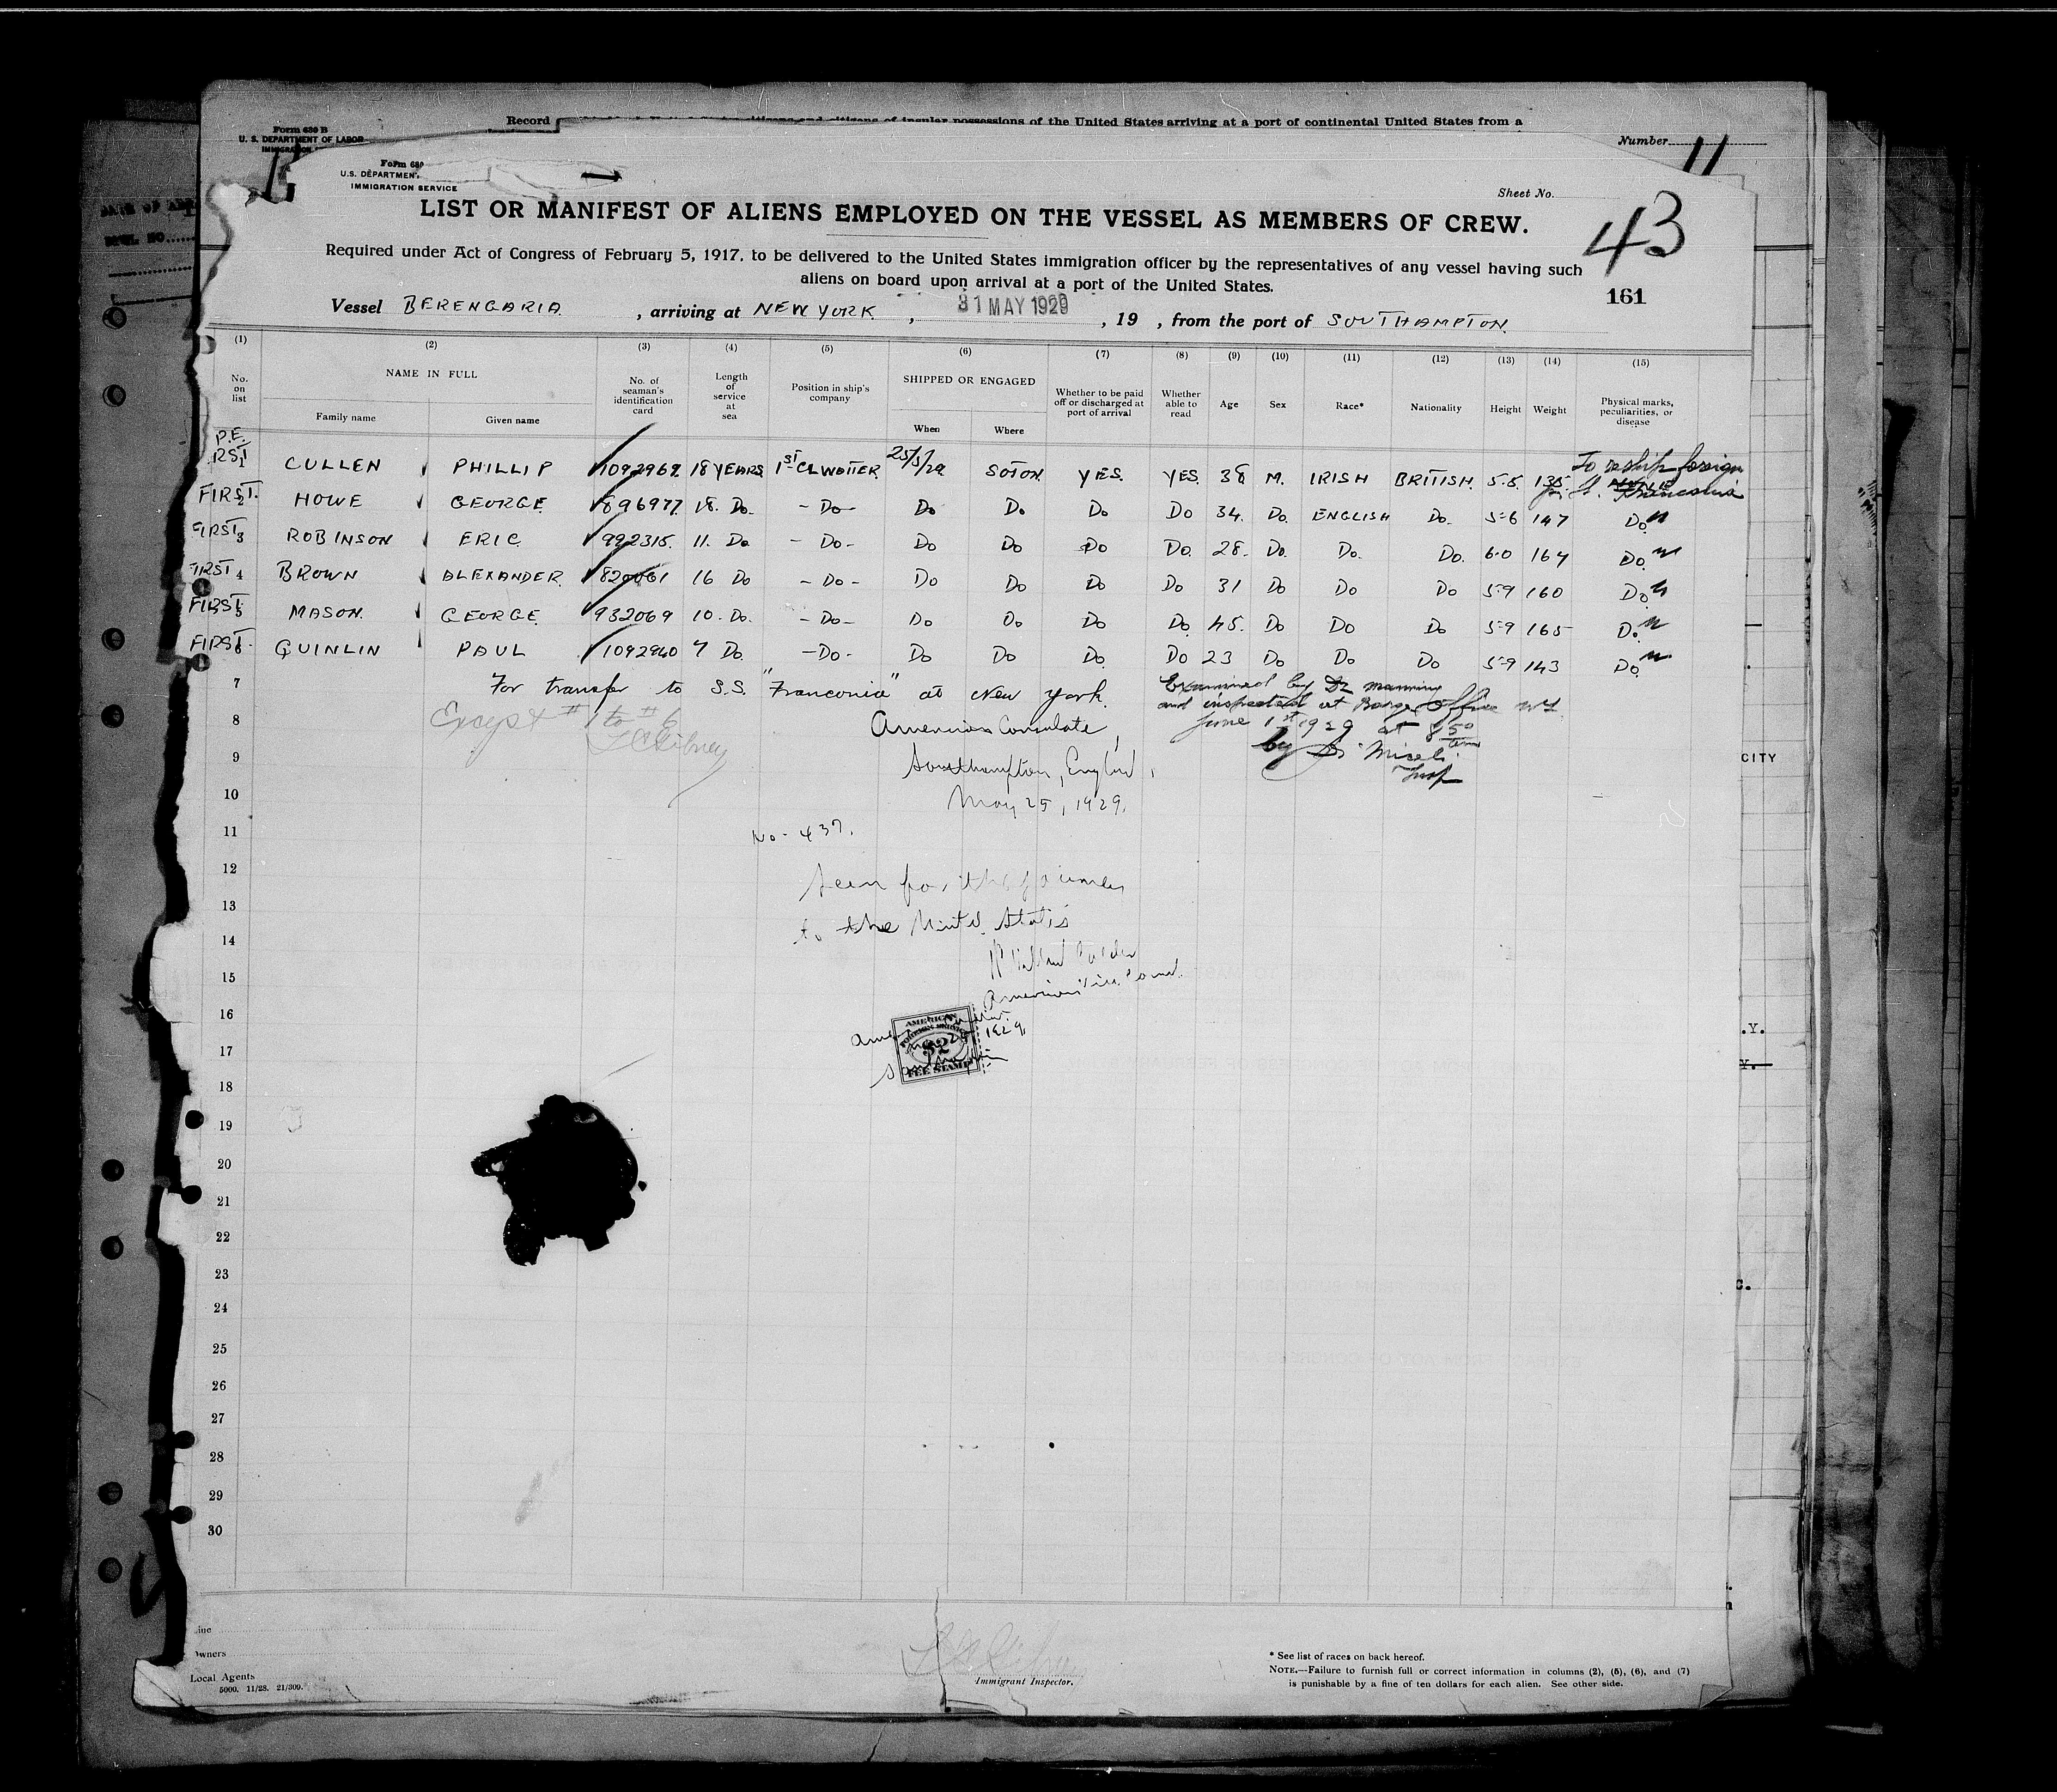 Form 689 B
U. S. DEPARTMENT OF LABOR
Record
of the United States arriving at a port of continental United States from a
Number 11
Form 689
U.S. DEPARTMENT
IMMIGRATION SERVICE
Sheet No.
43
LIST OR MANIFEST OF ALIENS EMPLOYED ON THE VESSEL AS MEMBERS OF CREW.
Required under Act of Congress of February 5, 1917, to be delivered to the United States immigration officer by the representatives of any vessel having such
aliens on board upon arrival at a port of the United States.
161
Vessel BERENGARIA , arriving at NEW YORK , 31 MAY 1929 , 19 , from the port of SOUTHAMPTON.
(1) (2) (3) (4) (5) (6) (7) (8) (9) (10) (11) (12) (13) (14) (15)
No. on list NAME IN FULL Family name Given name No. of seaman's identification card Length of service at sea Position in ship's company SHIPPED OR ENGAGED When Where Whether to be paid off or discharged at port of arrival Whether able to read Age Sex Race* Nationality Height Weight Physical marks, peculiarities, or disease
P.E.
1 CULLEN PHILLIP 1092969 18 YEARS 1ST CL WAITER 25/5/29 SOTON YES. YES. 38 M. IRISH BRITISH. 5.8. 135. To reship foreign
FIRST. 2 HOWE GEORGE 896977 18. Do. - Do - Do Do Do Do 34. Do. ENGLISH Do. 5-6 147 Do
FIRST 3 ROBINSON ERIC 992315. 11. Do - Do - Do Do Do Do. 28. Do. Do. Do. 6.0 164 Do.
FIRST 4 BROWN ALEXANDER 820061 16 Do - Do - Do Do Do Do 31 Do Do Do 5.9 160 Do
FIRST 5 MASON. GEORGE 932069 10. Do. - Do - Do Do Do Do 45. Do Do Do 5-9 165 Do
FIRST 6 QUINLIN PAUL 1092940 7 Do. - Do - Do Do Do. Do 23 Do Do Do 5-9 143 Do
7 For transfer to S.S. "Franconia" at New York.
Examined by Dr Manning
and inspected at Barge Office NY
June 1st 1929 at 850
by
Insp
8 Except #1 to #6
American Consulate,
9 Southampton, England,
10 May 25, 1929.
11 No. 437.
12 Seen for the journey
13 to the United States
14
15 American Vice Consul.
16
17
AMERICAN
FOREIGN SERVICE
$2
FEE STAMP
1929.
18
19
20
21
22
23
24
25
26
27
28
29
30
CITY
.Y.
Y.
C.
ine
wners
Local Agents
5000. 11/28. 21/309.
Immigrant Inspector.
* See list of races on back hereof.
NOTE.—Failure to furnish full or correct information in columns (2), (5), (6), and (7)
is punishable by a fine of ten dollars for each alien. See other side.